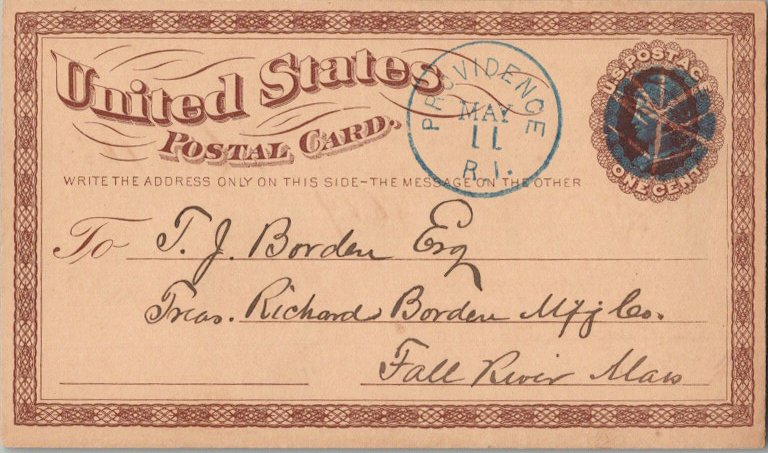 United States
POSTAL CARD.
WRITE THE ADDRESS ONLY ON THIS SIDE-THE MESSAGE ON THE OTHER
PROVIDENCE
MAY
11
R.I.
U.S. POSTAGE
ONE CENT
To T. J. Borden Esq
Treas. Richard Borden Mfg Co.
Fall River Mass